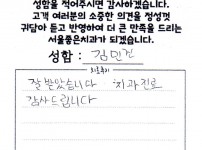 성함을 적어주시면 감사하겠습니다.
고객 여러분의 소중한 의견을 정성껏
귀담아 듣고 반영하여 더 큰 만족을 드리는
서울좋은치과가 되겠습니다.
성함 : 김민건
잘 받았습니다 치과진료
감사드립니다